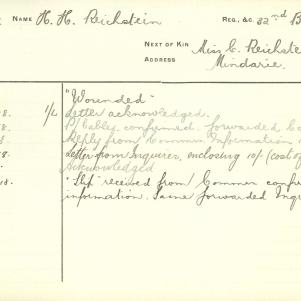 NAME H. H. Reichstein REG., &C. 32nd B
NEXT OF KIN Miss C. Reichste
ADDRESS Mindarie.
"Wounded"
8. 1/L Letter acknowledged.
8. confirmed. forwarded C
8. Reply from Commr. Information
8. Letter from Inquirer, enclosing 10/- (cost of
Acknowledged
18. "Slip" received from Commr confir
information. Same forwarded Inq